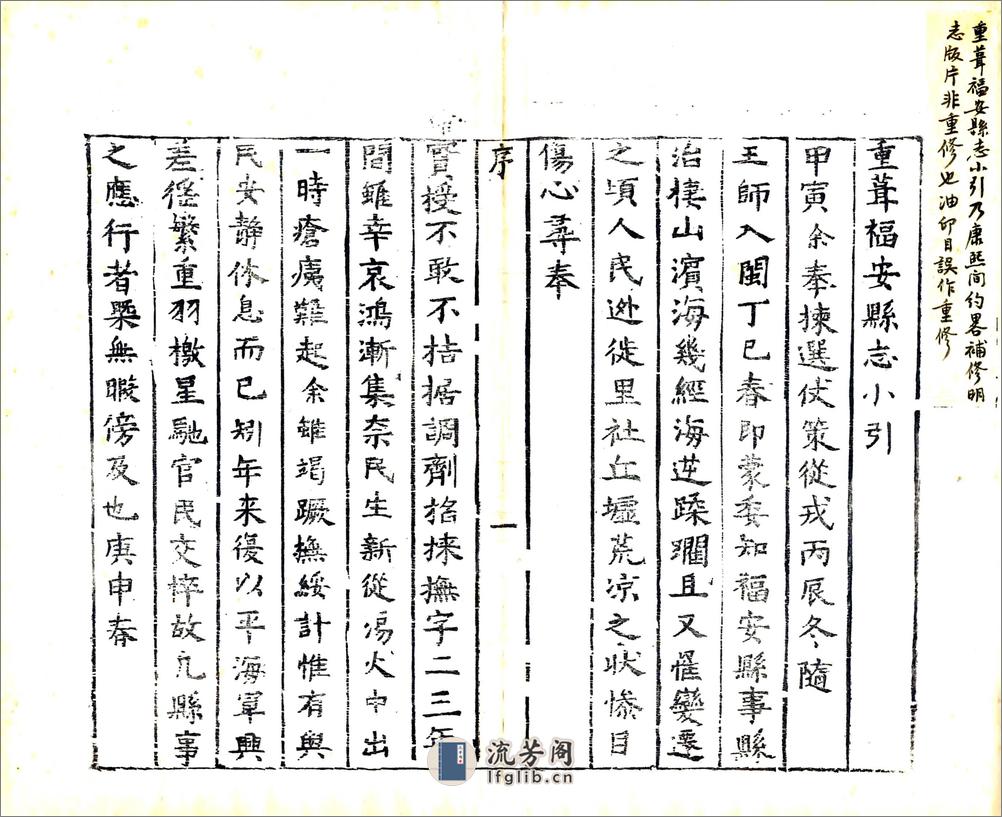 重葺福安縣志小引乃康熙間約畧補修明
志版片非重修也油印目誤作重修
重葺福安縣志小引
甲寅余奉揀選仗策從戎丙辰冬隨
王師入閩丁巳春即蒙委知福安縣事縣
治棲山濱海幾經海逆蹂躪且又罹變遷
之頃人民逃徙里社丘墟荒凉之狀慘目
傷心尋奉
序
一
實授不敢不拮据調劑招徠撫字二三年
間雖幸哀鴻漸集奈民生新從湯火中出
一時瘡痍難起余雖竭蹶撫綏計惟有與
民安靜休息而已矧年来復以平海軍興
差徭繁重羽檄星馳官民交瘁故凢縣事
之應行者槩無暇傍及也庚申春
流芳阁
lfglib.cn